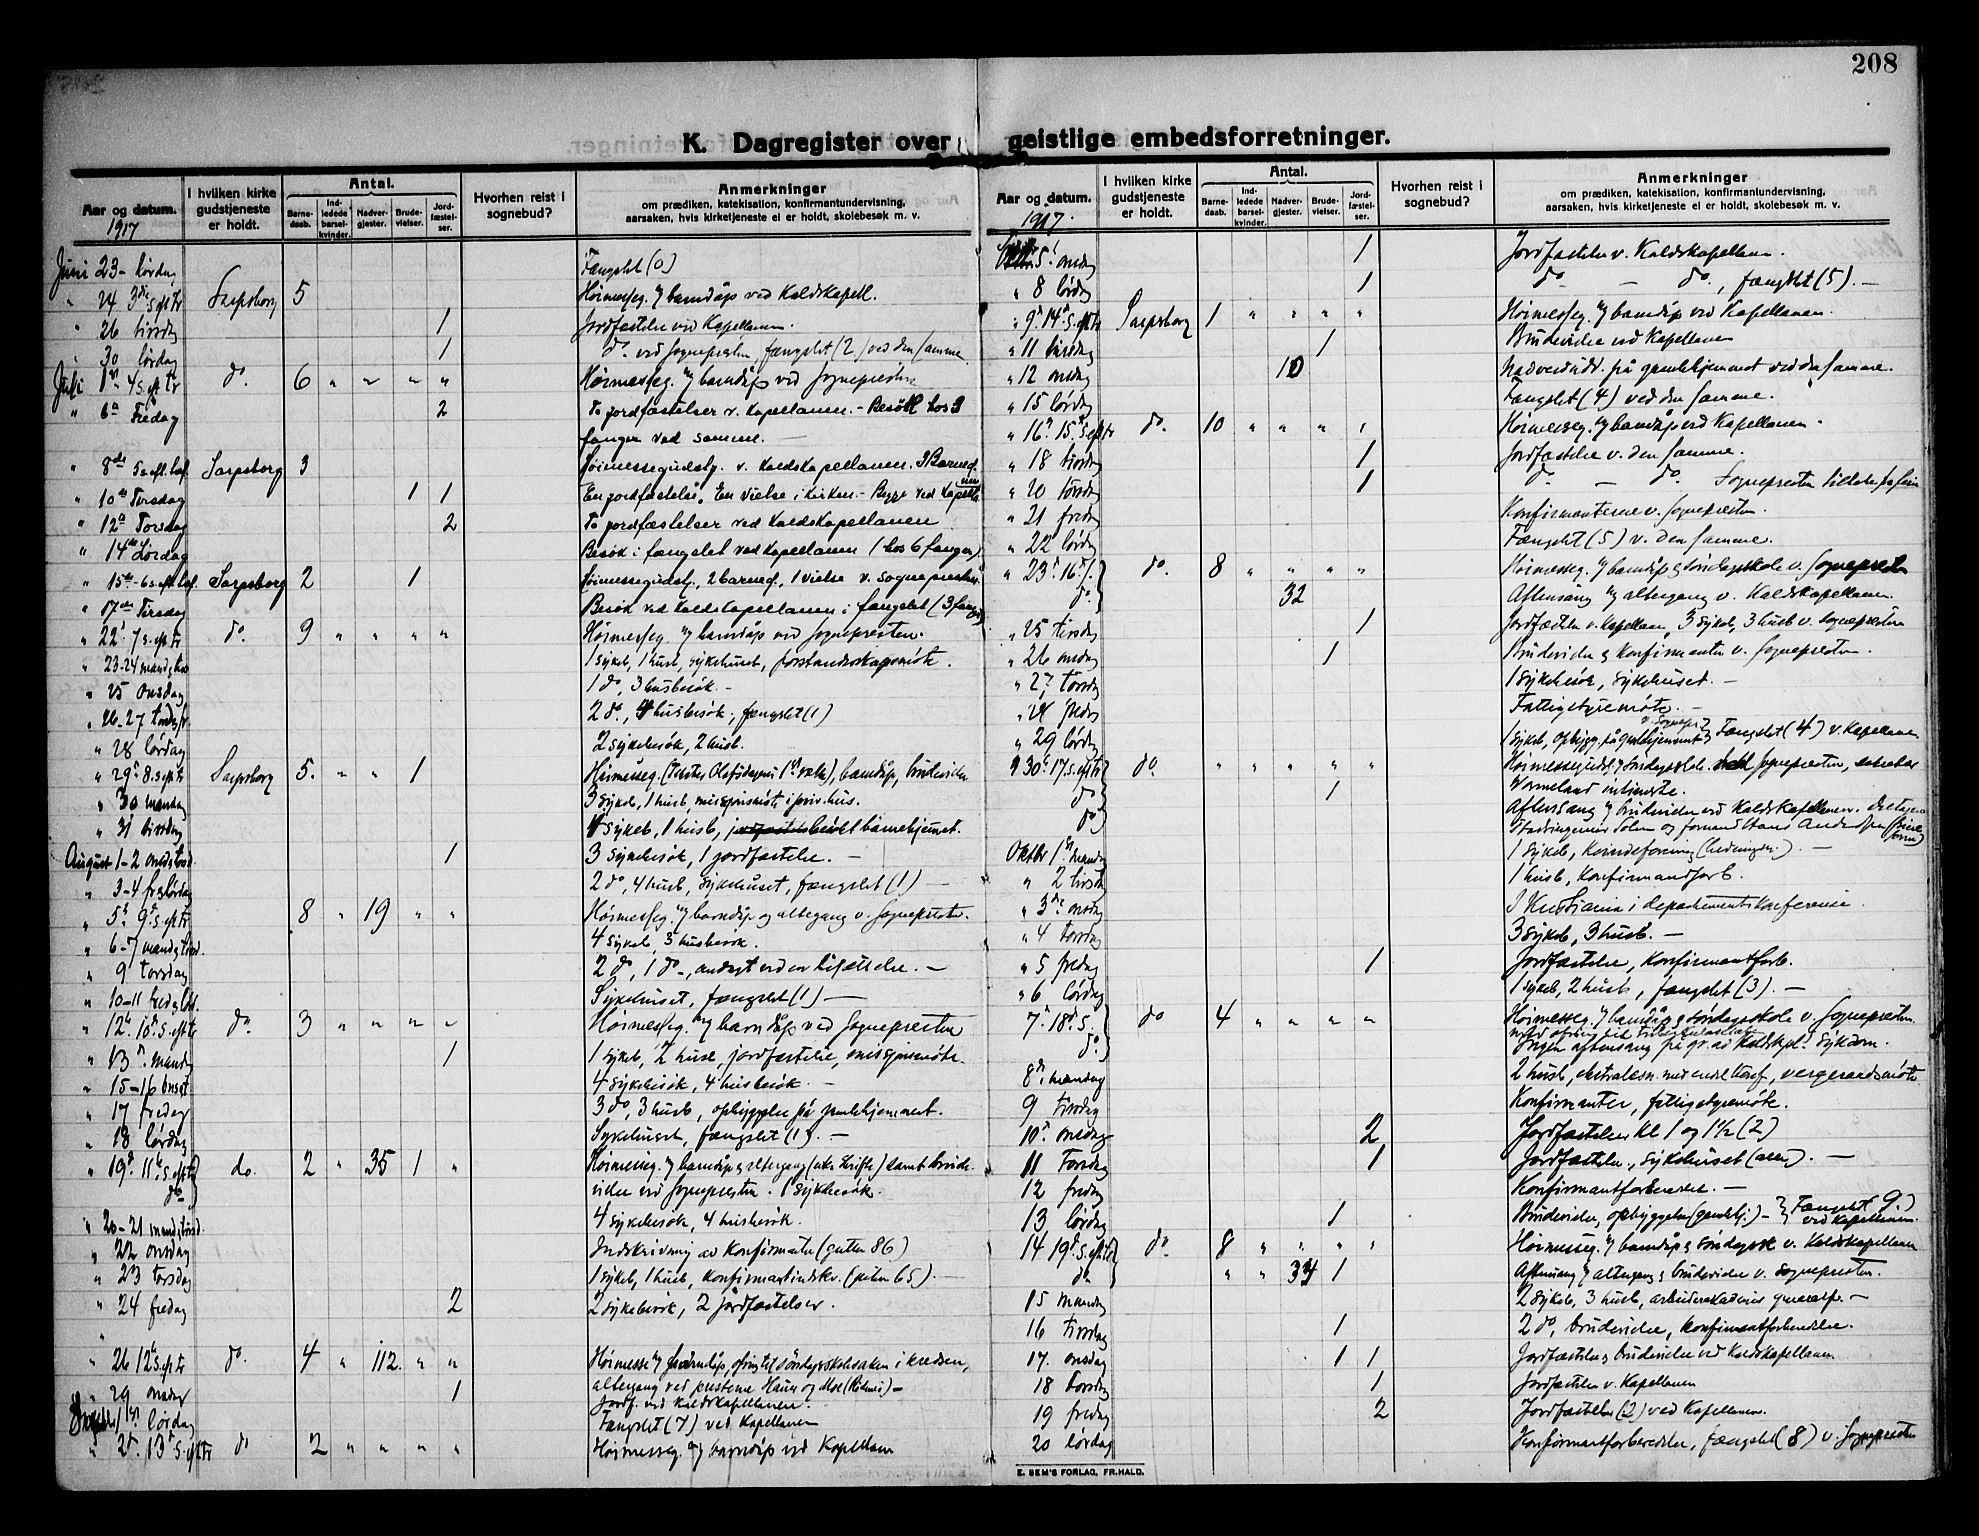 208
K. Dagregister over geistlige embedsforretninger.
Aar og datum. 1917
I hvilken kirke gudstjeneste er holdt.
Antal.
Barnedaab.
Indledede barselkvinder.
Nadvergjester.
Brudevielser.
Jordfæstelser.
Hvorhen reist i sognebud?
Anmerkninger
om prædiken, katekisation, konfirmantundervisning,
aarsaken, hvis kirketjeneste ei er holdt, skolebesøk m. v.
Juni 23 - lørdag Fængslet (0)
" 24 3die s eft tr Sarpsborg 5 Høimesseg. m/ barndåp ved Kaldskapell.
" 26 tirsdag 1 Jordfæstelse ved Kapellanen.
30 lørdag 1 do. ved Sognepresten, fængslet (2) ved den samme
Juli 1ste 4 s. e ft tr do. 6 " " " " Høimesseg. m/ barndåp ved Sognepresten
" 6te Fredag 2 To jordfæstelser v. Kapellanen. - Besøk hos 3
fanger ved samme. -
" 8de 5 s. eft. tref. Sarpsborg 3 Høimessegudstj. v. Kaldskapellanen. 3 Barned.
" 10de Tirsdag 1 1 En jordfæstelse. En Vielse i kirken. - Begge ved Kapellanen
" 12te Torsdag 2 To jordfæstelser ved Kaldskapellanen
" 14de Lørdag Besøk i fængslet ved Kapellanen (hos 6 fanger)
" 15de 6 s. eft. tref. Sarpsborg 2 1 Høimessegudstj., 2 barned., 1 vielse v. Sognepresten.
" 17de Tirsdag Besøk ved Kaldskapellanen i fængslet (3 fanger)
" 22 7 s. eft tr do. 9 " " " " Høimesseg. m/ barndåp ved Sognepresten.
" 23-24 mand, tirs 1 sykeb, 1 husb, sykehuset, forstanderskapsmøte.
" 25 Onsdag 1 do, 3 husbesøk. -
" 26-27 tors, fr. 2 do., 4 husbesøk, fængslet (1)
" 28 lørdag 2 sykebesøk, 2 husb.
" 29 8. s eft tr Sarpsborg 5. " " 1 Høimesseg. (Tekster Olafsdagens 1ste række), barndåp, brudevielse
" 30 mandag 3 sykeb, 1 husb, misjonsmøte i priv. hus.
" 31 tirsdag 4 sykeb, 1 husb, besøkt barnehjemmet.
August 1-2 onsd, torsd. 1 3 sykebesøk, 1 jordfæstelse. -
" 3-4 fr & lørdag 2 do, 4 husb, sykehuset, fængslet (1) -
" 5te 9de s. eft tr 8 " 19 " " Høimesseg. m/ barndåp og altergang v. Sognepresten.
" 6-7 mand & tirsd. 4 sykeb, 3 husbesøk.
" 9 torsdag 2 do, 1 do -, andagt ved en bisættelse. -
" 10-11 fred & lørd. Sykehuset, fængslet (1) -
" 12te 10de s. eft tr do. 3 " " " " Høimesseg. m/ barndåp ved Sognepresten
" 13de mandag 1 1 sykeb, 2 husb, jordfæstelse, misjonsmøte.
" 15-16 ons & t 4 sykebesøk, 4 husbesøk. -
" 17 fredag 3 do, 3 husb, opbyggelse på gamlehjemmet.
" 18 lørdag Sykehuset, fængslet (1). -
" 19de 11te s eft tr do. 2 " 35 1 " Høimesseg. m/ barndåp & altergang (uten skrifte) samt brude-
do vielse ved Sognepresten. 1 sykebesøk.
" 20-21 mand & tirsd 4 sykebesøk, 4 husbesøk.
" 22 onsdag Indskrivning av Konfirmanter (gutter 86)
" 23 torsdag 1 sykeb, 1 husb, konfirmantindskr. (piker 65). -
" 24 fredag 2 2 sykebesøk, 2 jordfæstelser.
" 26 12te s. eft tr do. 4 " 112. " " Høimesse m/ barndåp, ofring til søndagsskolesaken i kredsen,
altergang ved presterne Hauge og Moe (Holmes) -
" 29 onsdag 1 Jordf. ved Kaldskapellanen.
1ste lørdag Fængslet (7) ved Kapellanen
" 2de 13de s eft tr do 2 " " " " Høimesseg. m/ barndåp ved Kapellanen
Aar og datum. 1917.
I hvilken kirke gudstjeneste er holdt.
Antal.
Barnedaab.
Indledede barselkvinder.
Nadvergjester.
Brudevielser.
Jordfæstelser.
Hvorhen reist i sognebud?
Anmerkninger
om prædiken, katekisation, konfirmantundervisning,
aarsaken, hvis kirketjeneste ei er holdt, skolebesøk m. v.
5 onsdag 1 Jordfæstelse v. Kaldskapellanen.
" 8 lørdag 1 do - do., fængslet (5). -
" 9de 14de s. eft tr Sarpsborg 1 " " " " Høimesseg. m/ barndåp ved Kapellanen.
" 11 tirsdag 1 Brudevielse ved Kapellanen
" 12 onsdag 10 Nadverdutd. på gamlehjemmet ved den samme.
" 15 lørdag Fængslet (4) ved den samme.
" 16de 15de s eft tr do. 10 " " " " Høimesseg. m/ barndåp ved Kapellanen.
" 18 tirsdag 1 Jordfæstelse v. den samme.
" 20 torsdag 1 do - do. Sognepresten tilbake fra ferie
" 21 fredag Konfirmanterne v. Sognepresten.
" 22 lørdag Fængslet (5) v. den samme.
" 23de 16de do. 8 " " " " Høimesseg. m/ barndåp & søndagsskole v. Sognepresten
do. 32 Aftensang m/ altergang v. Kaldskapellanen.
" 25 tirsdag 1 Jordfæstelse v. Kapellanen, 3 sykeb, 3 husb v. Sognepresten
" 26 onsdag 1 Brudevielse & Konfirmanter v. Sognepresten.
" 27 torsdag 1 sykebesøk, sykehuset. -
" 28 fredag Fattigstyremøte. -
" 29 lørdag 1 sykeb, opbygg. på gamlehjemmet v. Sognepr. } Fængslet (4) v. Kapellanen
" 30te 17. s. eft tr do. " " " " " Høimessegudst. & søndagsskole ved Sognepresten,
do 1 Aftensang m/ brudevielse ved Kaldskapellanen.
do
Oktbr 1ste mandag 1 sykeb, Kvindeforening (hedningem.) -
" 2 tirsdag 1 husb, konfirmandforb.
" 3die onsdag I Kristiania i departementskonferanse.
" 4 torsdag 3 sykeb, 3 husb. -
" 5 fredag 1 Jordfæstelse, Konfirmantforb.
" 6 lørdag 1 sykeb, 2 husb, fængslet (3). -
7de 18de s. do 4 " " " " Høimesseg. m/ barndåp & søndagsskole v. Sognepresten
do. Ingen aftensang på gr. av Kaldskpl. sykdom.
8de mandag 2 husb, vergeraadsmøte
9 tirsdag Konfirmanter, fattigstyremøte.
10de onsdag 2 Jordfæstelser kl 1 og 1½ (2)
11 Torsdag 1 Jordfæstelse, sykehuset. -
12 fredag Konfirmantforberedelse. -
13 lørdag 1 Brudevielse, opbyggelse (gamlehj.) - } Fængslet 9.) ved Kapellanen.
14 19de s. eft tr do. 8 " " " " Høimesseg. m/ barndåp & søndagssk v. Kaldskapellanen
do " " 34 1 Aftensang m/ altergang & brudevielse v. Sognepresten.
15 mandag 2 sykeb, 3 husb, arbeiderakademiets generalf. -
16 tirsdag 1 2 do, brudevielse, konfirmantforberedelse.
17. onsdag 1 1 Jordfæstelse & brudevielse ved Kaldskapellanen
18 torsdag 1 Jordfæstelse v. Kapellanen
19 fredag 2 Jordfæstelse (2) ved Kapellanen.
20 lørdag Konfirmantforberedelse, fængslet (8) v. Sognepresten
E. SEM'S FORLAG, FR.HALD.